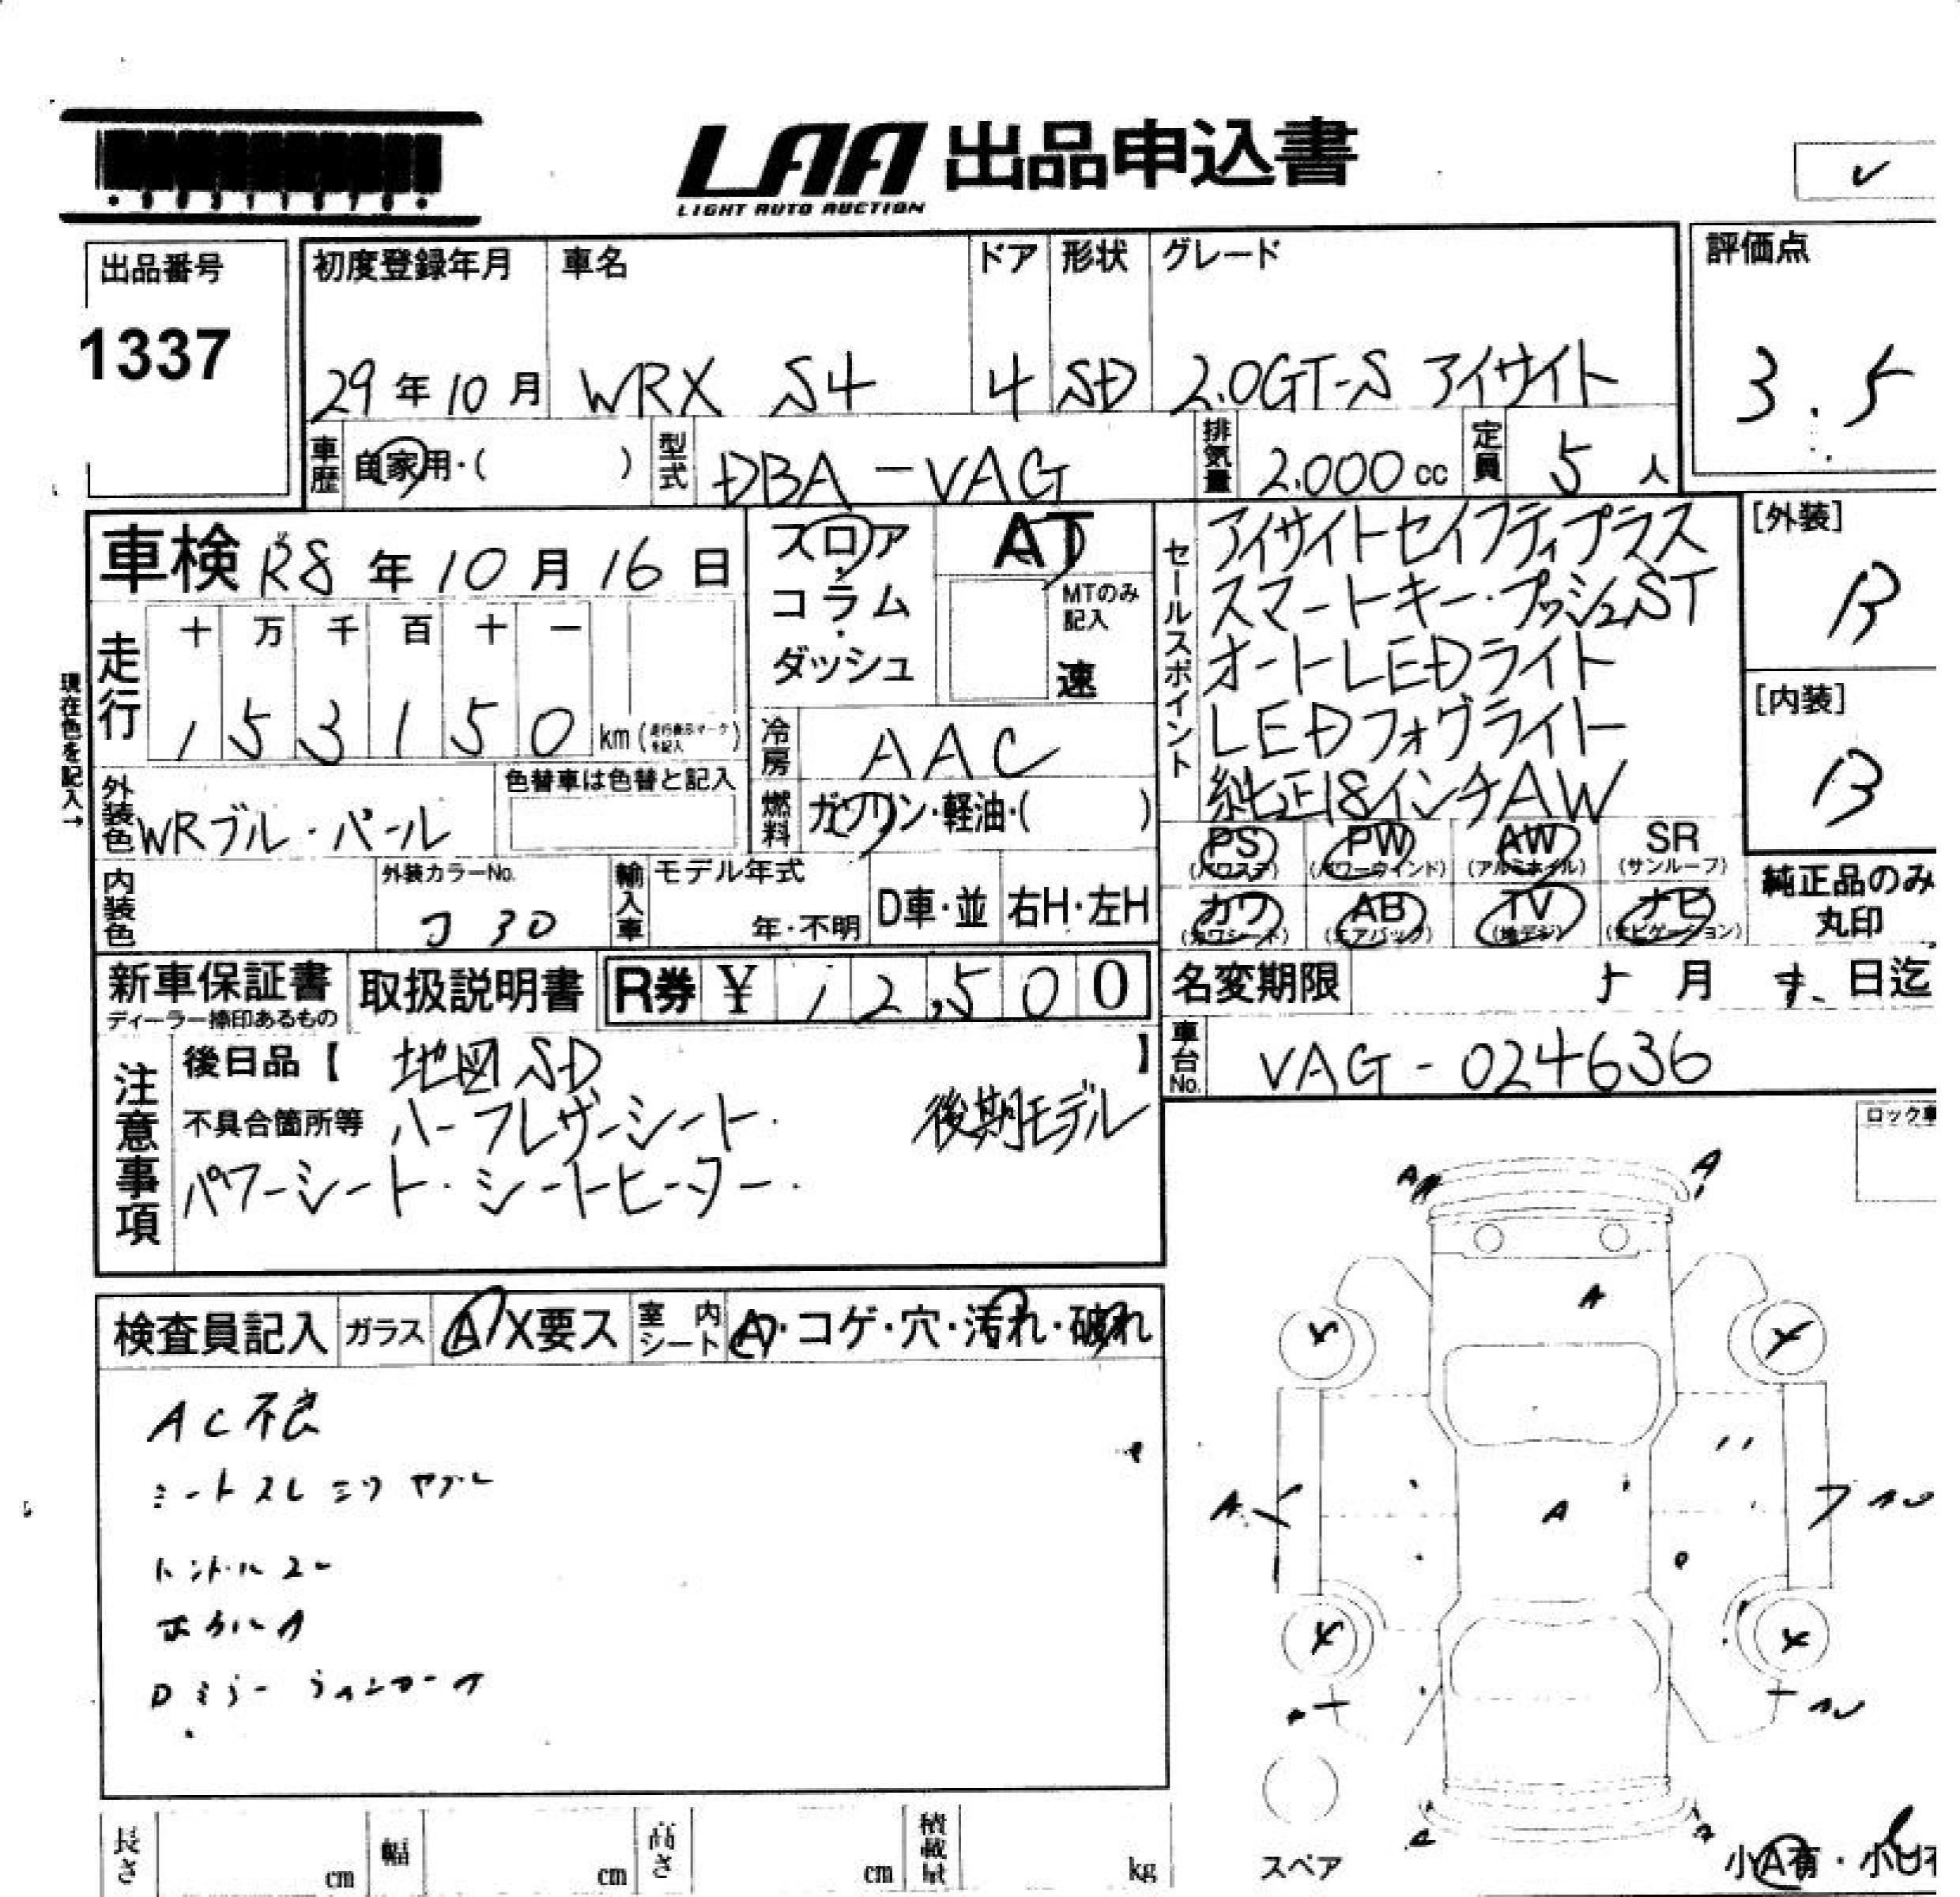 LAA 出品申込書
LIGHT AUTO AUCTION
出品番号
1337
初度登録年月 車名 ドア 形状 グレード
29年10月 WRX S4 4 SD 2.0GT-S アイサイト
評価点
3.5
車歴 自家用・( ) 型式 DBA-VAG 排気量 2.000cc 定員 5人
車検 R8年10月16日
走行 十 万 千 百 十 一
1 5 3 1 5 0 km (走行表示マークを記入)
現在色を記入→
外装色 WRブルー・パール
色替車は色替と記入
内装色
外装カラーNo.
J30
輸入車 モデル年式 年・不明 D車・並 右H・左H
フロア・コラム・ダッシュ
AT
MTのみ記入
速
冷房 AAC
燃料 ガソリン・軽油・( )
セールスポイント
アイサイトセイフティプラス
スマートキー・プッシュST
オートLEDライト
LEDフォグライト
純正18インチAW
PS (パワステ) PW (パワーウインド) AW (アルミホイル) SR (サンルーフ)
カワ (カワシート) AB (エアバック) TV (地デジ) ナビ (ナビゲーション)
[外装]
B
[内装]
B
純正品のみ丸印
新車保証書
ディーラー捺印あるもの
取扱説明書
R券 ¥ 12,500
名変期限 月 日迄
車台No. VAG-024636
注意事項
後日品【 地図SD 】
不具合箇所等 ハーフレザーシート. 後期モデル
パワーシート・シートヒーター.
ロック
検査員記入 ガラス A X要ス 室内シート A・コゲ・穴・汚れ・破れ
AC不良
シートスレ シワ ヤブレ
A
A
A
A
A
スペア
小A有・小U
長さ cm 幅 cm 高さ cm 積載量 kg